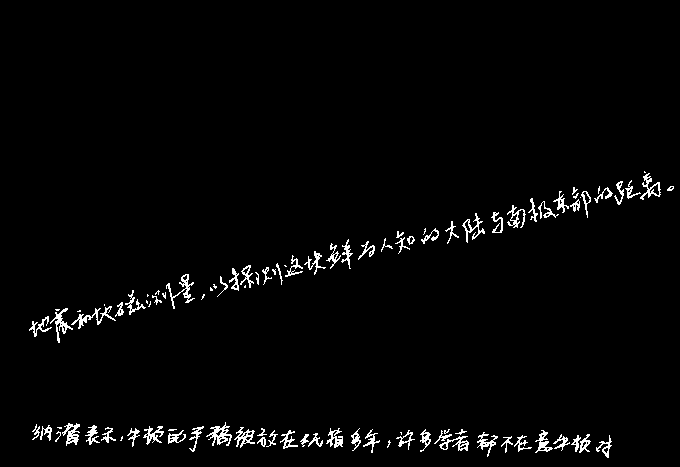 地震和地磁测量,以探测这块鲜为人知的大陆与南极东部的距离。
纳潘表示,牛顿的手稿被放在纸箱多年,许多学者都不在意牛顿对